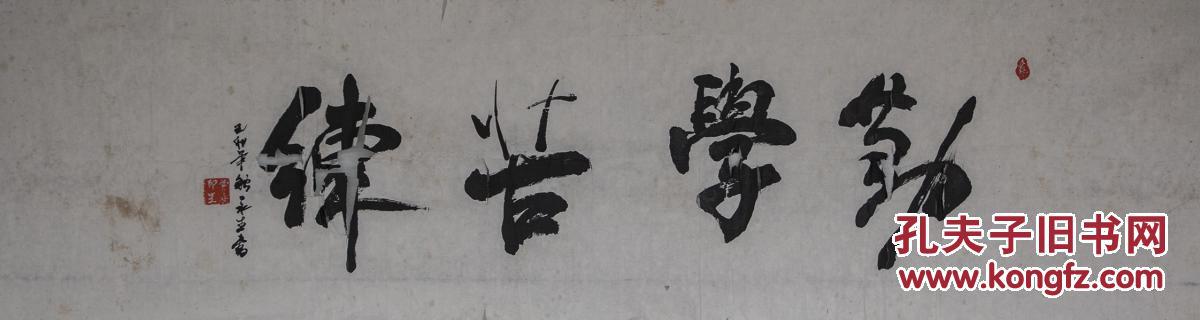 勤學苦練
孔夫子旧书网
www.kongfz.com